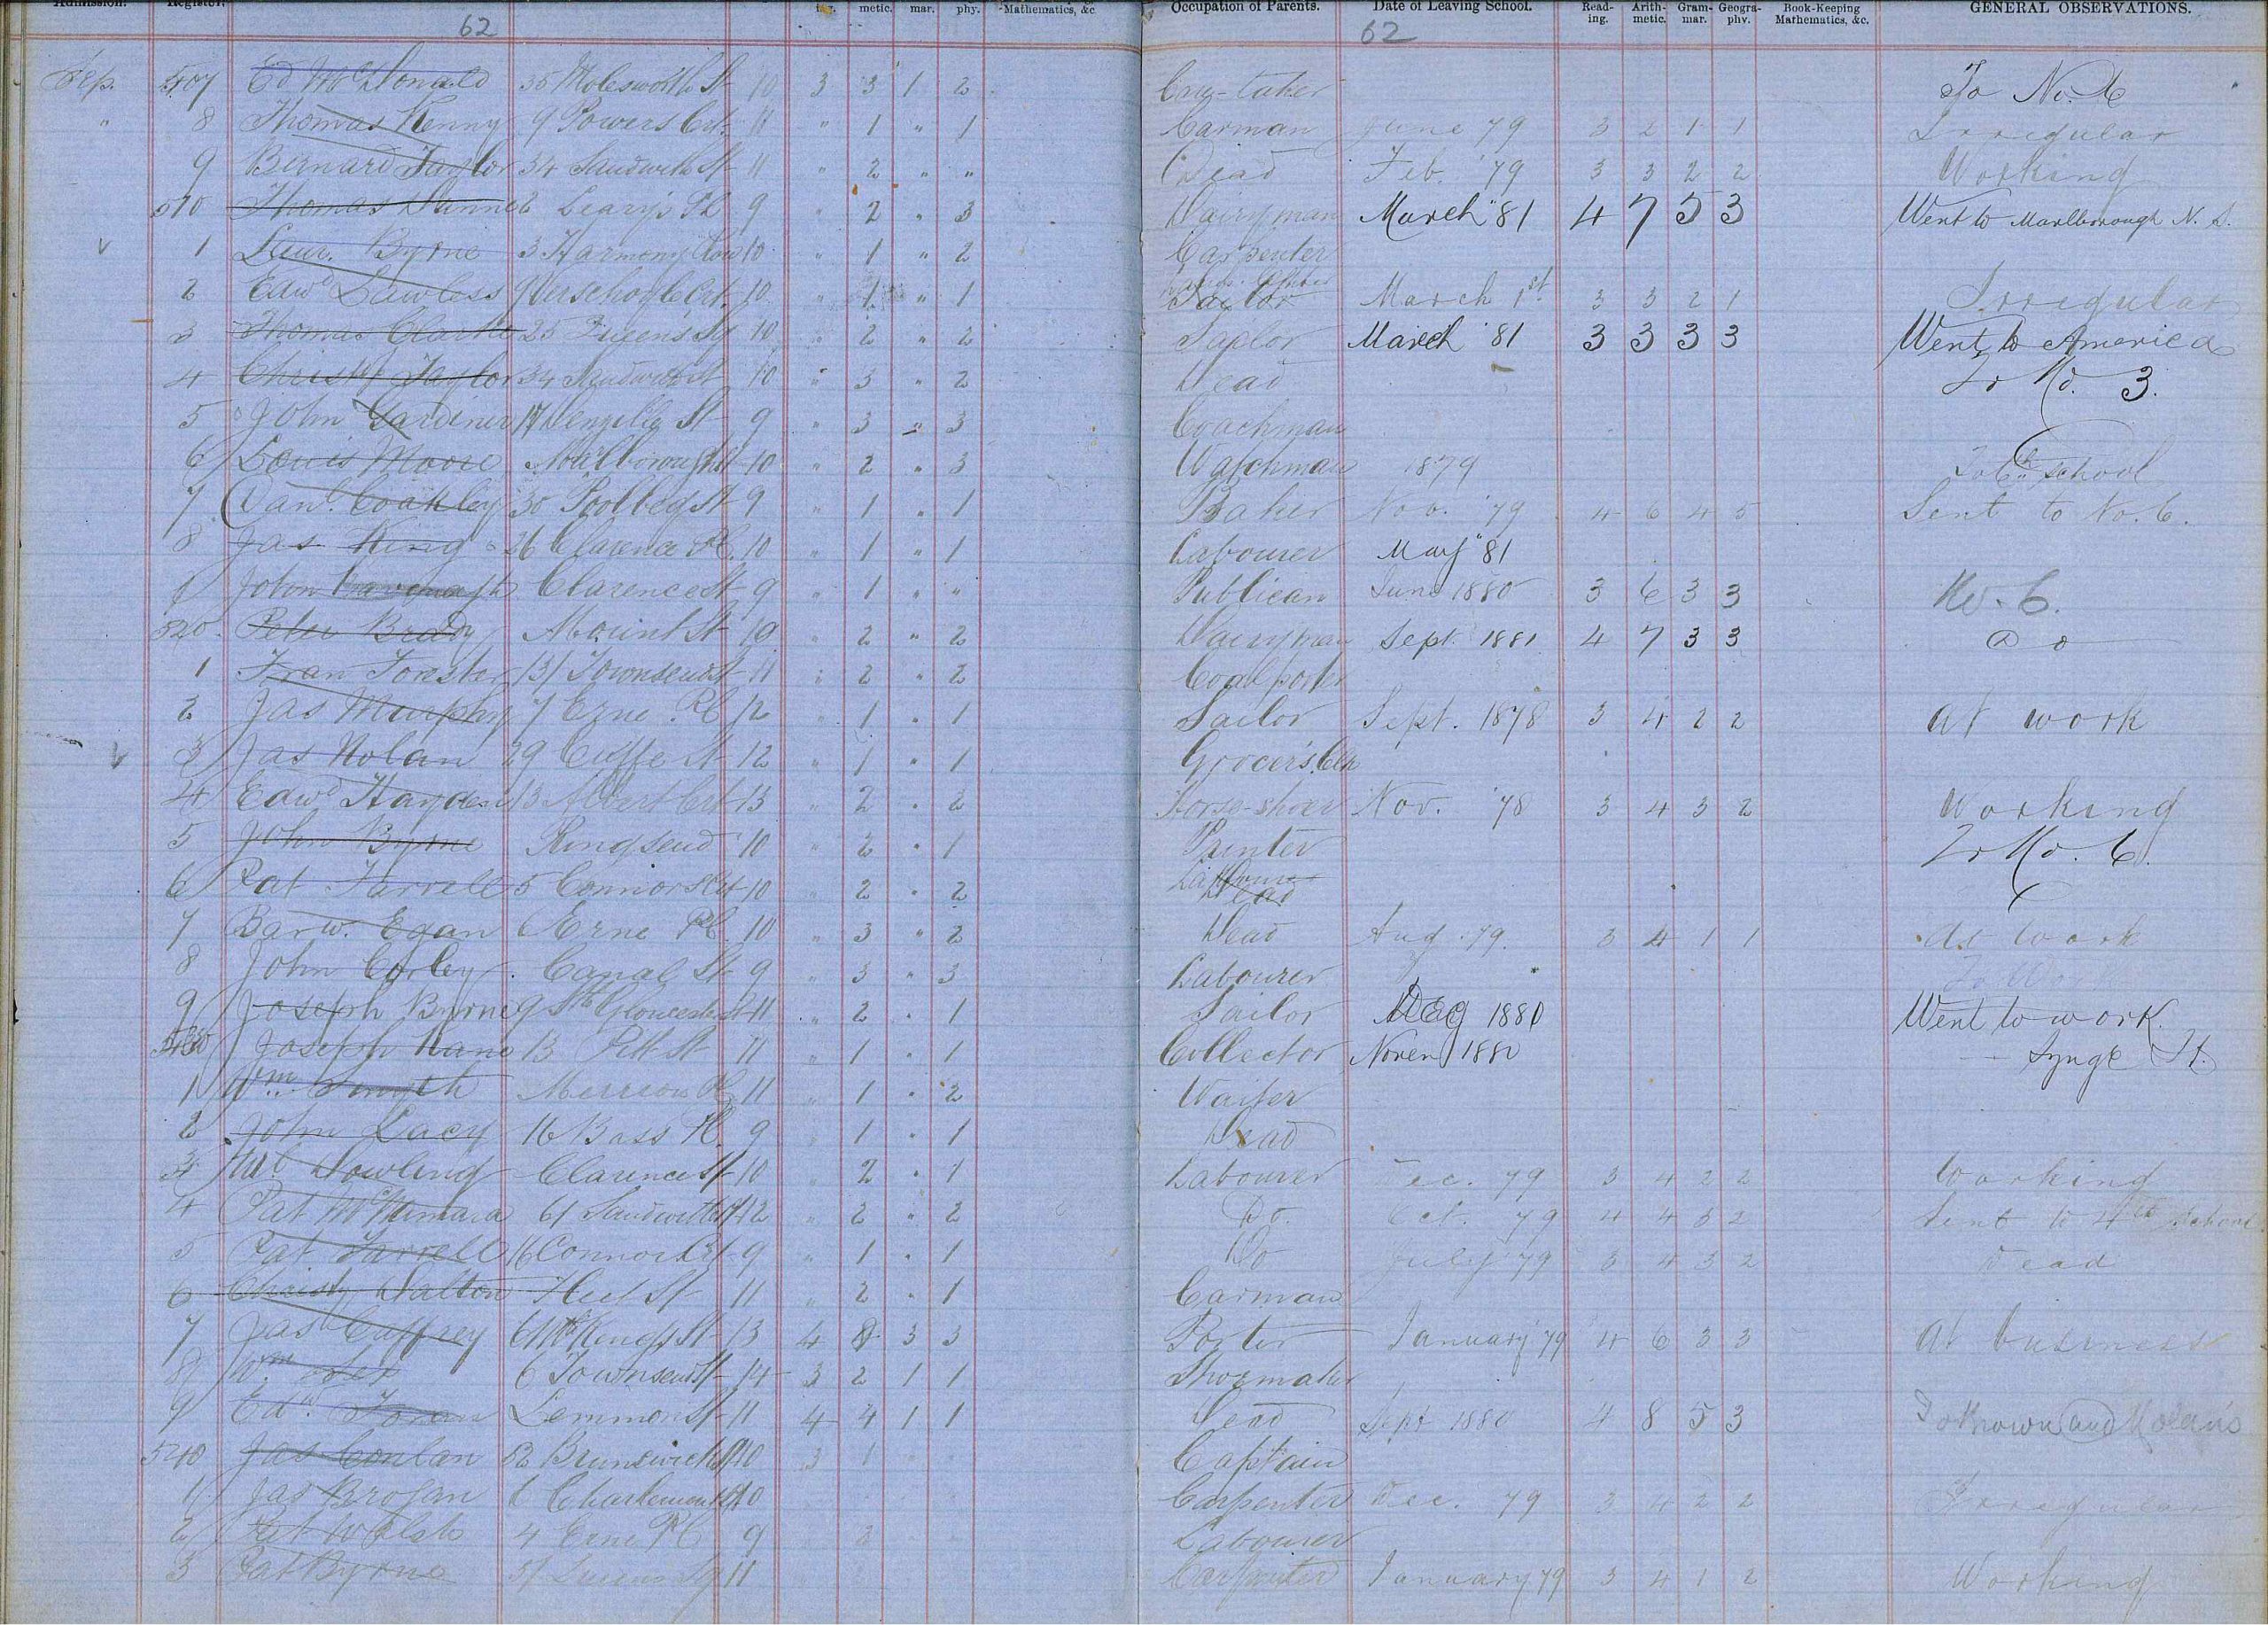 Admission. Register. ing. metic. mar. phy. Mathematics, &c Occupation of Parents. Date of Leaving School. Read-ing. Arith-metic. Gram-mar. Geogra-phy. Book-Keeping Mathematics, &c. GENERAL OBSERVATIONS.
62 62
Sep. 507 Ed McDonald 35 Molesworth St 10 3 3 1 2 Care-taker To No. 6
" 8 Thomas Kenny 9 Powers Crt. 11 " 1 " 1 Carman June 79 3 2 1 1 Irregular
9 Bernard Taylor 34 Sandwith St 11 " 2 " " Dead Feb. '79 3 3 2 2 Working
510 Thomas Dunne 6 Leary's Pl 9 " 2 " 3 Dairyman March "81 4 7 5 3 Went to Marlborough N. S.
1 Laur. Byrne 3 Harmony Row 10 " 1 " 2 Carpenter
2 Edwd Lawless 9 Verschoyle Crt 10 " 1 " 1 Tailor March 1st 3 3 2 1 Irregular
3 Thomas Clarke 25 Queen's Sq 10 " 2 " 2 Tailor March '81 3 3 3 3 Went to America
4 Christr Taylor 34 Sandwith St 10 " 3 " 2 Dead To No. 3.
5 John Gardiner 17 Denzille St 9 " 3 " 3 Coachman
6 Louis Moore Marlborough St 10 " 2 " 3 Watchman 1879 To 6th School
7 Danl. Coakley 30 Poolbeg St 9 " 1 " 1 Baker Nov. '79 4 6 4 5 Sent to No. 6.
8 Jas King 26 Clarence Pl. 10 " 1 " 1 Labourer May "81
9 John Cavanagh Clarence St 9 " 1 " " Publican June 1880 3 6 3 3 No. 6.
520 Peter Brady Mount St 10 " 2 " 2 Dairyman Sept. 1881 4 7 3 3 Do
1 Fran Forester 131 Townsend St 11 " 2 " 2 Coal porter
2 Jas Murphy 7 Erne Pl 12 " 1 " 1 Sailor Sept. 1878 3 4 2 2 at work
3 Jas Nolan 29 Cuffe St 12 " 1 " 1 Grocer's Clk
4 Edwd Hayden 13 Albert Crt 13 " 2 " 2 Horse-shoer Nov. '78 3 4 3 2 Working
5 John Byrne Ringsend 10 " 2 " 1 Painter To No. 6.
6 Pat Farrell 5 Connors Crt 10 " 2 " 2 Labourer Dead
7 Barw. Egan 6 Erne Pl. 10 " 3 " 2 Dead Aug. 79. 3 4 1 1 At work
8 John Corley Canal St 9 " 3 " 3 Labourer To Work
9 Joseph Byrne 9 Sth Gloucester St 11 " 2 " 1 Sailor Dec 1880 Went to work.
530 Joseph Kane 13 Pitt St 11 " 1 " 1 Collector Novem 1880 Synge St.
1 Wm Smyth Merrion Pl 11 " 1 " 2 Waiter
2 John Lacy 16 Bass Pl. 9 " 1 " 1 Dead
3 Ml Dowling Clarence St 10 " 2 " 1 Labourer Dec. 79 3 4 2 2 Working
4 Pat McNamara 61 Sandwith St 12 " 2 " 2 Do. Oct. 79 4 4 3 2 Sent to 4th School
5 Pat Farrell 16 Connors Crt 9 " 1 " 1 Do July '79 3 4 3 2 Dead
6 Christy Dalton St 11 " 2 " 1 Carman
7 Jas Caffrey 61 Kings St 13 4 8 3 3 Porter January '79 4 6 3 3 At business
8 Wm 6 Townsend St 14 3 2 1 1 Shoemaker
9 Edwd. Foran Lemmon St 11 4 4 1 1 Dead Sept 1880 4 8 5 3 To Brown and Nolan's
540 Jas Conlan 52 Brunswick St 10 3 1 Captain
1 Jas Brogan 6 Charlemont St 10 Carpenter Dec. 79 3 4 2 2 Irregular
2 Pat Walsh 4 Erne Pl 9 Labourer
3 Pat Byrne 31 Queens Sq 11 Carpenter January 79 3 4 1 2 Working